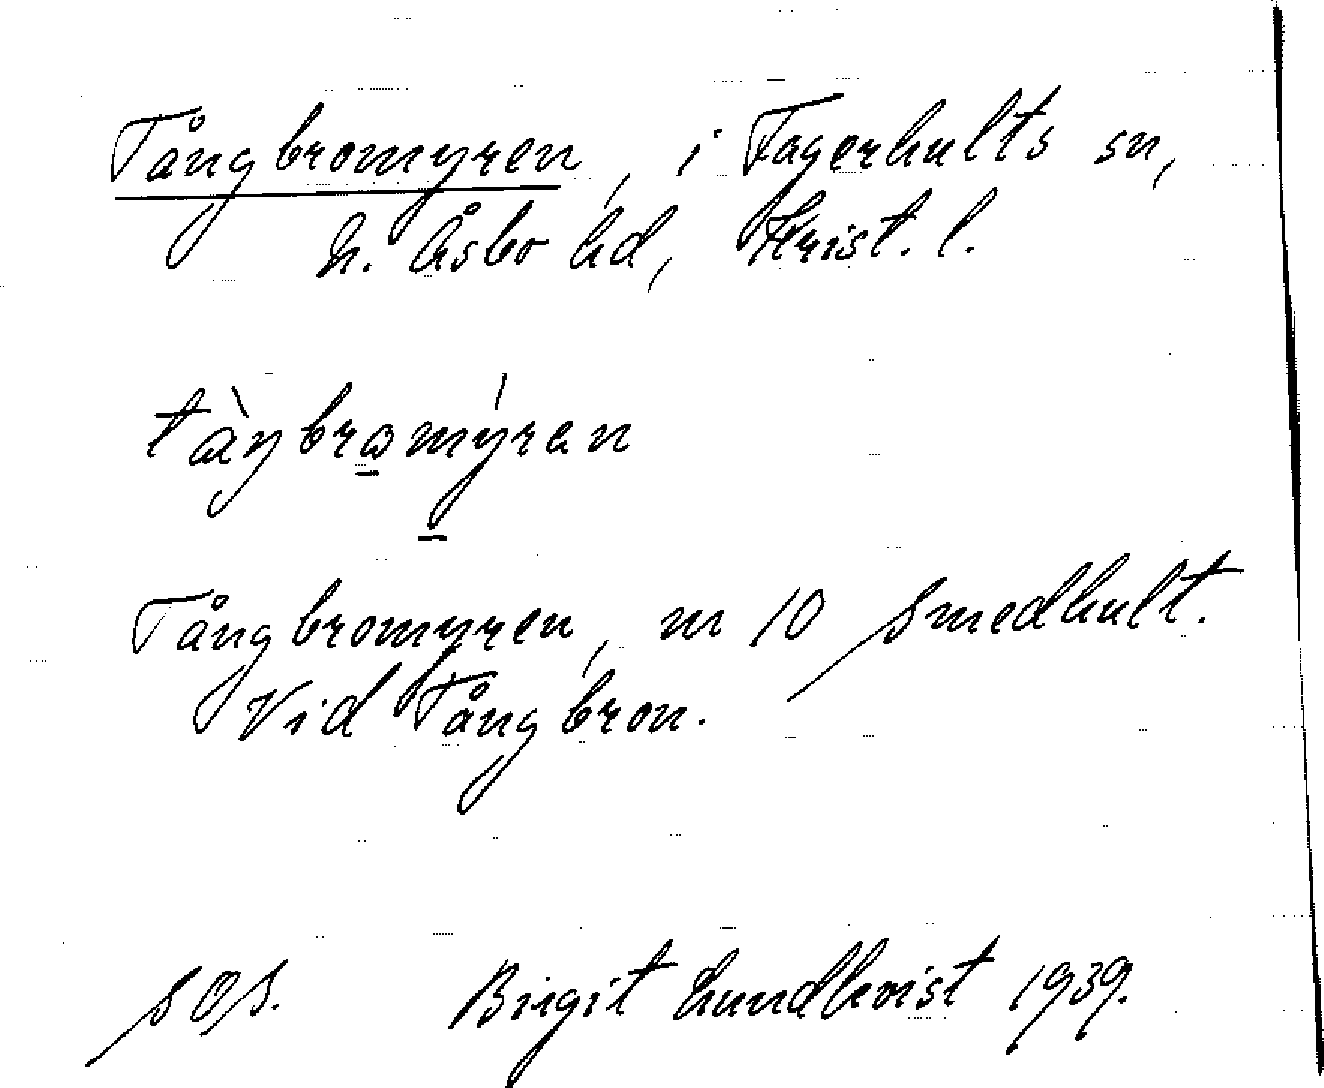 Tångbromyren, i Fagerhults sn,
N. Åsbo hd, Krist. l.
tàŋbromýran
Tångbromyren, m 10 Smedhult.
Vid Tångbron.
SOS. Birgit Lundkvist 1939.